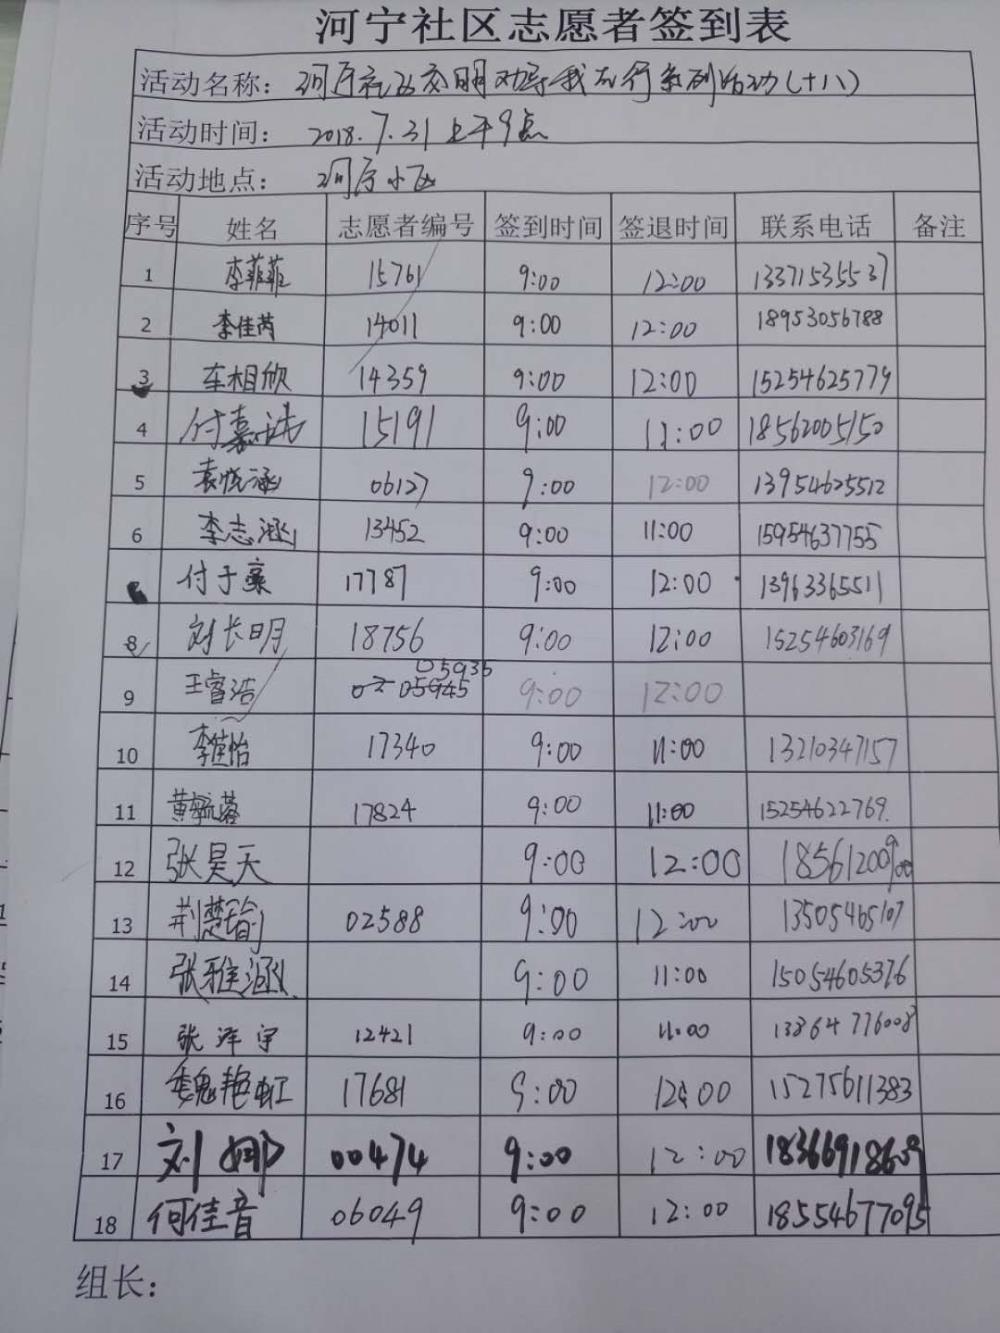 河宁社区志愿者签到表
活动名称：河宁社区文明劝导我先行系列活动（十八）
活动时间：2018.7.31上午9点
活动地点：河宁小区
序号 姓名 志愿者编号 签到时间 签退时间 联系电话 备注
1 李菲菲 15761 9:00 12:00 13371535537
2 李佳芮 14011 9:00 12:00 18953056788
3 车相欣 14359 9:00 12:00 15254625779
4 付嘉诰 15191 9:00 11:00 18562005150
5 袁悦涵 06127 9:00 12:00 13954625512
6 李志涵 13452 9:00 11:00 15954637755
付于豪 17787 9:00 12:00 13963365511
8 刘长明 18756 9:00 12:00 15254603169
9 王睿浩 05936 9:00 12:00
10 李萱怡 17340 9:00 11:00 13210347157
11 黄毓蓉 17824 9:00 11:00 15254622769.
12 张昊天 9:00 12:00
13 荆楚瑜 02588 9:00 12:00 13505465107
14 张雅涵 9:00 11:00 15054605376
15 张洋宇 12421 9:00 11:00 13864776008
16 魏艳虹 17681 9:00 12:00 15275611383
17 刘娜 00474 9:00 12:00 18366918609
18 何佳音 06049 9:00 12:00 18554677095
组长：